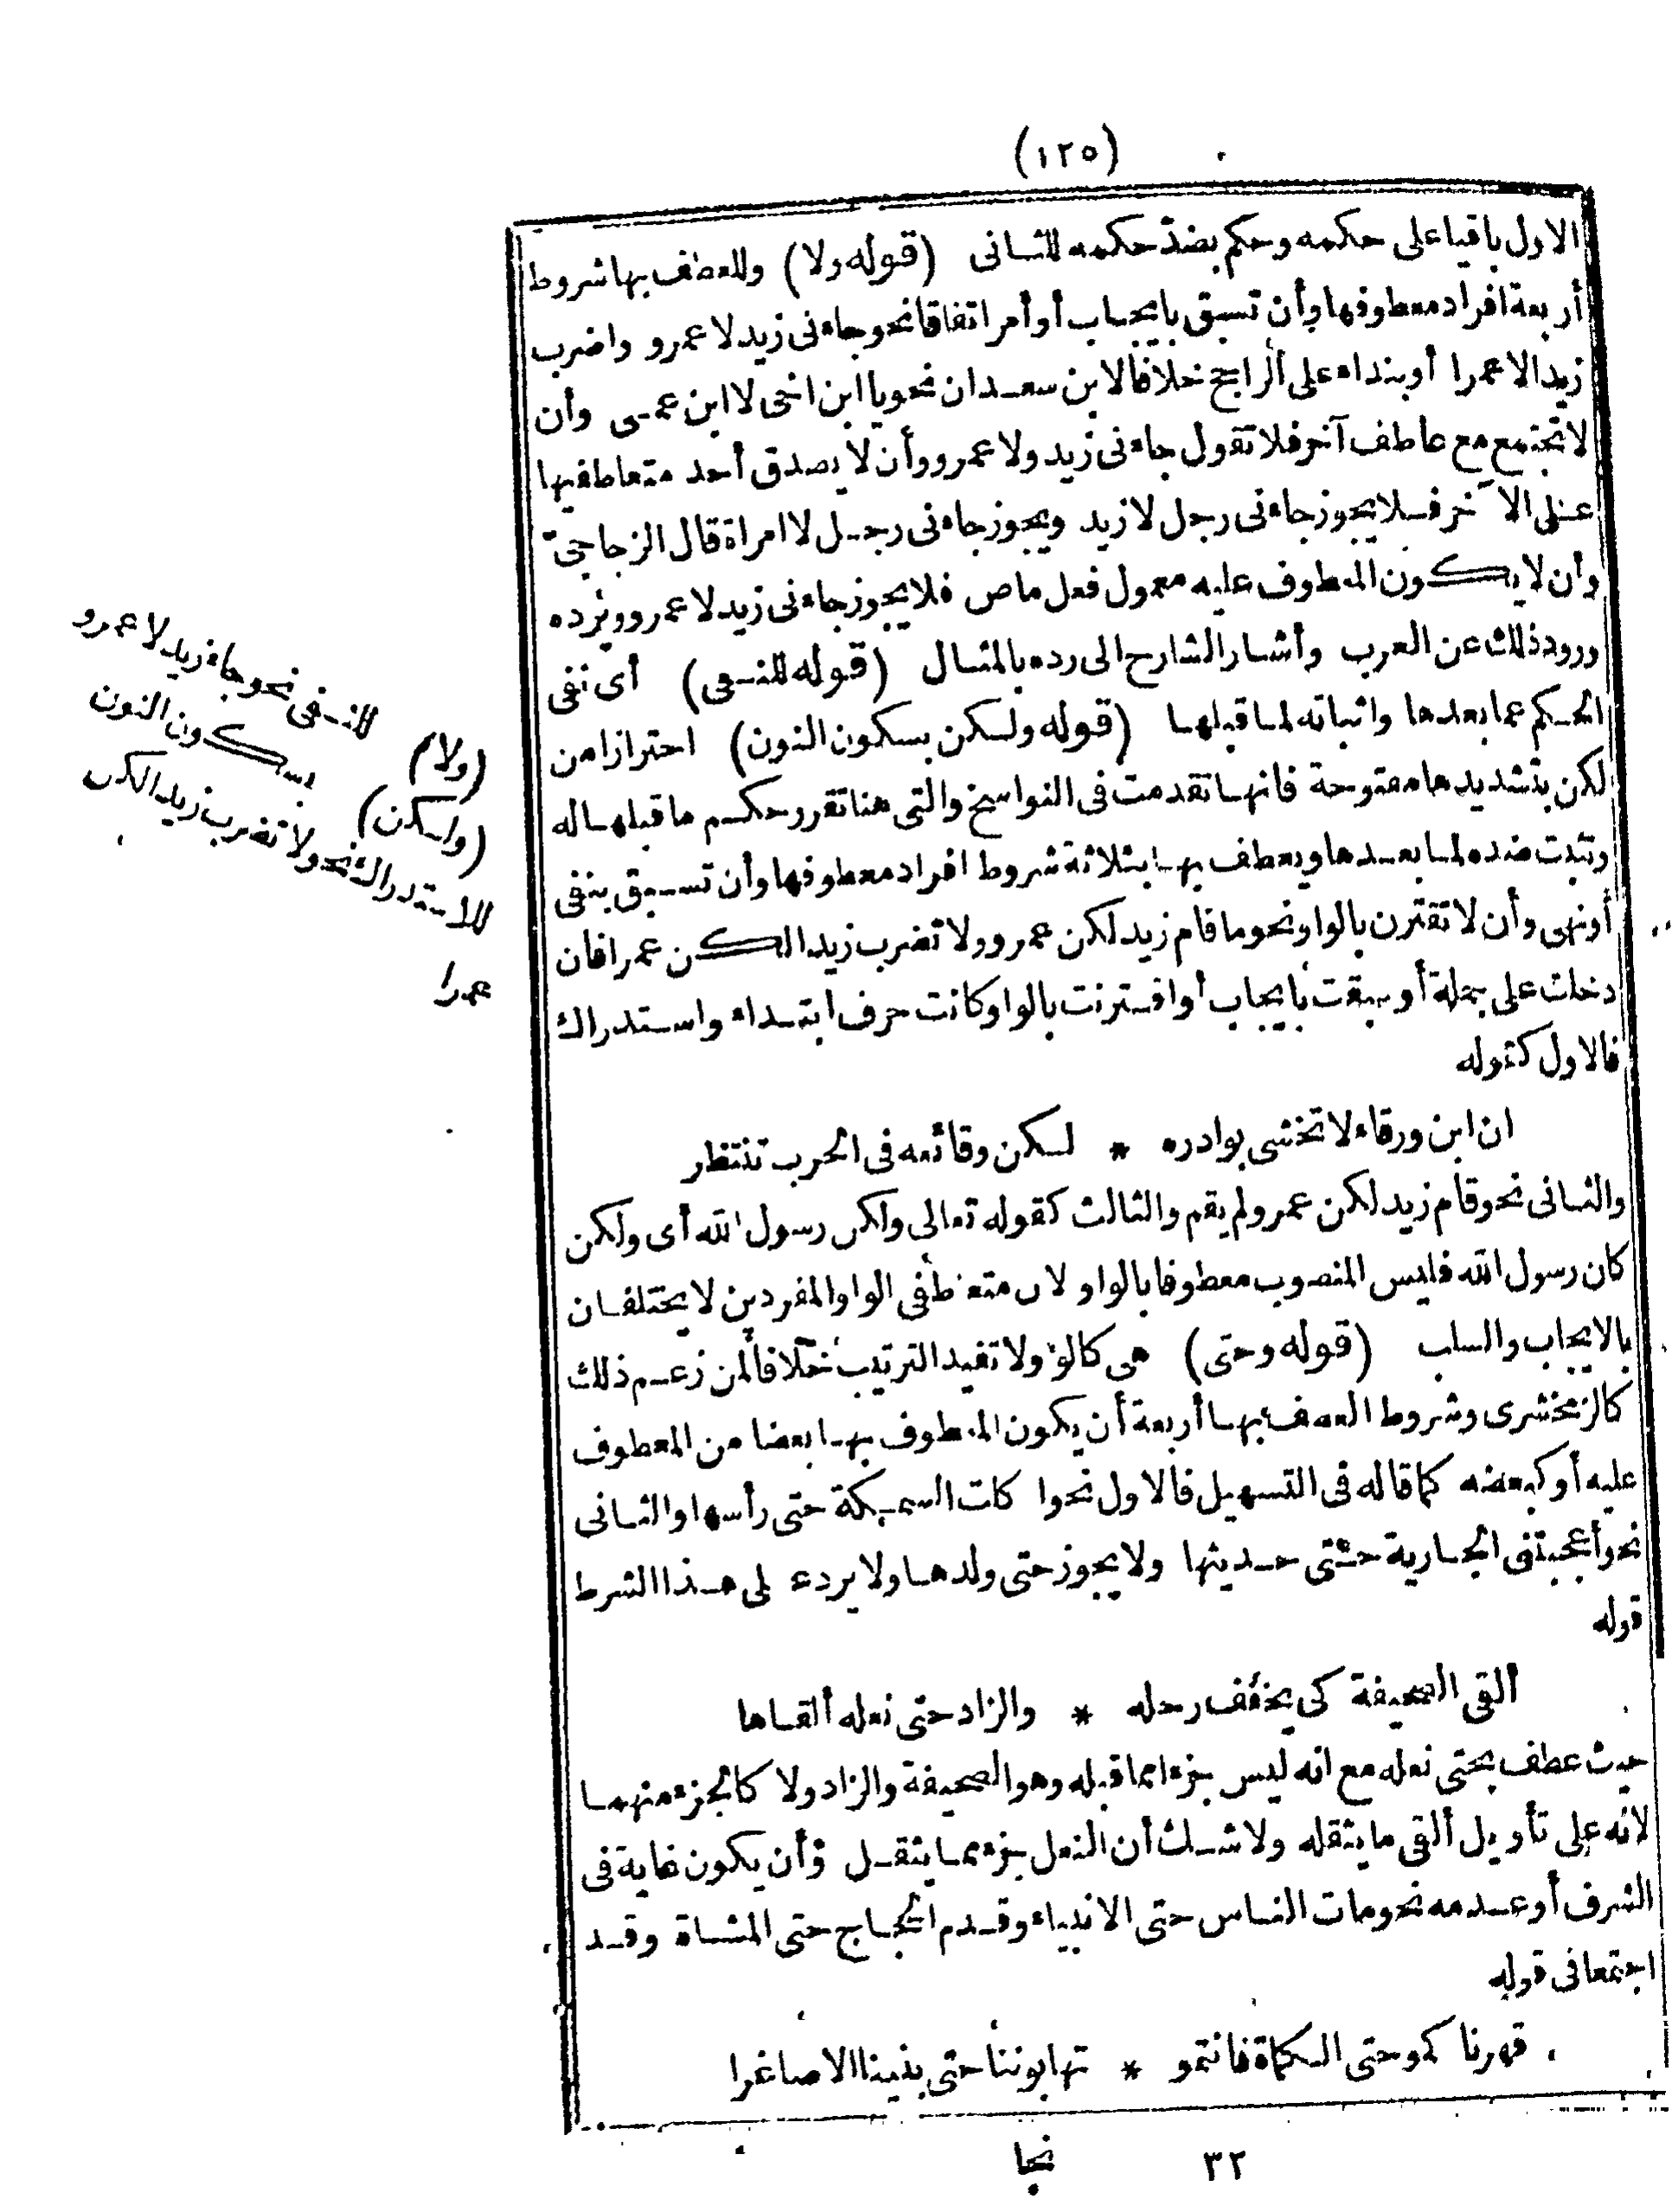 (١٢٥)
الاول باقيا على حكمه وحكم بضد حكمه للثانى (قوله ولا) وللعطف بها شروط
أربعة افراد معطوفها وأن تسبق بايجاب أو أمر اتفاقا نحو جاءنى زيد لا عمرو واضرب
زيدا لا عمرا أو بنداء على الراجح خلافا لابن سعدان نحو يا ابن اخى لا ابن عمى وأن
لا تجتمع مع عاطف آخر فلا تقول جاءنى زيد ولا عمرو وأن لا يصدق أحد متعاطفيها
على الآخر فلا يجوز جاءنى رجل لا زيد ويجوز جاءنى رجل لا امرأة قال الزجاجىّ
وأن لا يكون المعطوف عليه معمول فعل ماض فلا يجوز جاءنى زيد لا عمرو ويرده
ورود ذلك عن العرب وأشار الشارح الى رده بالمثال (قوله للنفى) أى نفى
الحكم عما بعدها واثباته لما قبلها (قوله ولكن بسكون النون) احترازا من
لكن بتشديدها مفتوحة فانها تقدمت فى النواسخ والتى هنا تقرر حكم ما قبلها له
وتثبت ضده لما بعدها ويعطف بها بثلاثة شروط افراد معطوفها وأن تسبق بنفى
أو نهى وأن لا تقترن بالواو نحو ما قام زيد لكن عمرو ولا تضرب زيدا لكن عمرا فان
دخلت على جملة أو سبقت بايجاب أو اقترنت بالواو كانت حرف ابتداء واستدراك
فالاول كقوله
ان ابن ورقاء لا تخشى بوادره * لكن وقائعه فى الحرب تنتظر
والثانى نحو قام زيد لكن عمرو لم يقم والثالث كقوله تعالى ولكن رسول الله أى ولكن
كان رسول الله فليس المنصوب معطوفا بالواو لان متعاطفى الواو المفردين لا يختلفان
بالايجاب والسلب (قوله وحتى) هى كالواو ولا تفيد الترتيب خلافا لمن زعم ذلك
كالزمخشرى وشروط العطف بها أربعة أن يكون المعطوف بها بعضا من المعطوف
عليه أو كبعضه كما قاله فى التسهيل فالاول نحو اكلت السمكة حتى رأسها والثانى
نحو أعجبتنى الجارية حتى حديثها ولا يجوز حتى ولدها ولا يرد على هذا الشرط
قوله
ألقى الصحيفة كى يخفف رحله * والزاد حتى نعله ألقاها
حيث عطف بحتى نعله مع انه ليس جزءا مما قبله وهو الصحيفة والزاد ولا كالجزء منهما
لانه على تأويل ألقى ما يثقله ولا شك أن النعل جزء مما يثقل وأن يكون غاية فى
الشرف أو عدمه نحو مات الناس حتى الانبياء وقدم الحجاج حتى المشاة وقد
اجتمعا فى قوله
قهرناكمو حتى الكماة فانتمو * تهابوننا حتى بنينا الاصاغرا
٣٢ نجا
(ولا) للنفى نحو جاء زيد لا عمرو
(ولكن) بسكون النون
للاستدراك نحو لا تضرب زيدا لكن
عمرا